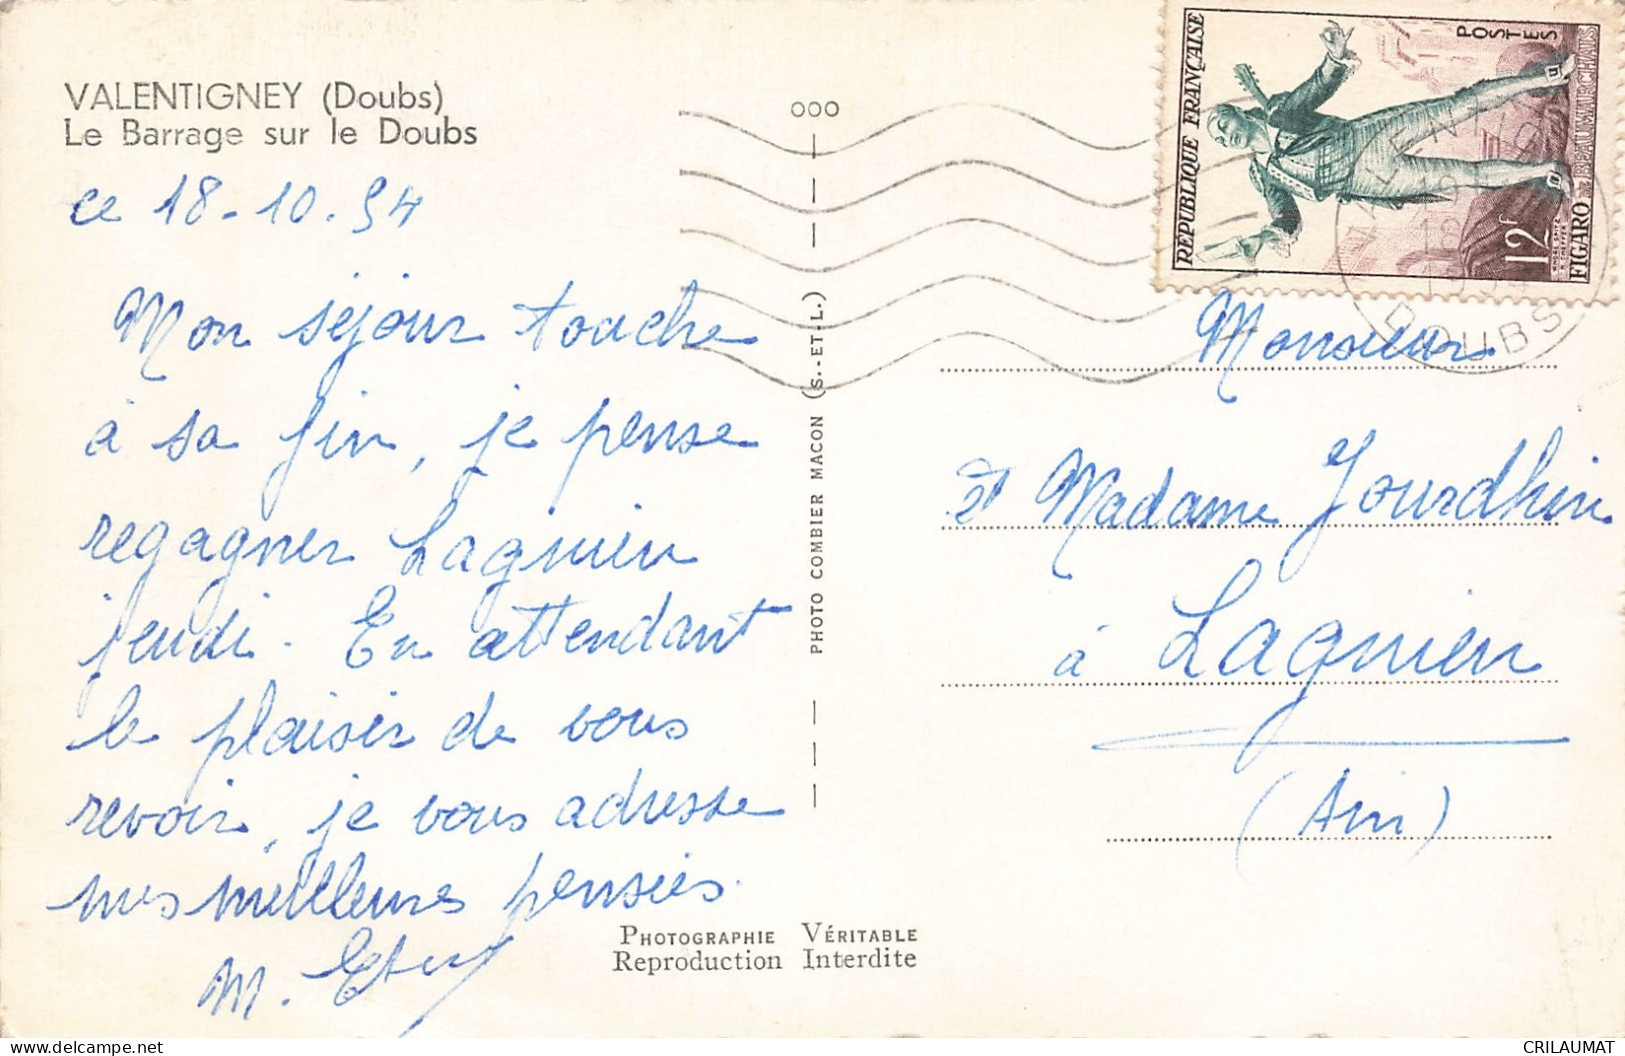 VALENTIGNEY (Doubs)
Le Barrage sur le Doubs
ce 18-10.54
Mon séjour touche
à sa fin, je pense
regagner Lagnieu
jeudi. En attendant
le plaisir de vous
revoir, je vous adresse
mes meilleures pensées.
M.
PHOTO COMBIER MACON (S.-ET-L.)
PHOTOGRAPHIE VÉRITABLE
Reproduction Interdite
000
RÉPUBLIQUE FRANÇAISE
POSTES
12F
FIGARO DE BEAUMARCHAIS
VALENTIGNEY
DOUBS
Monsieur
et Madame Jourdhin
à Lagnieu
(Ain)
delcampe.net
CRILAUMAT